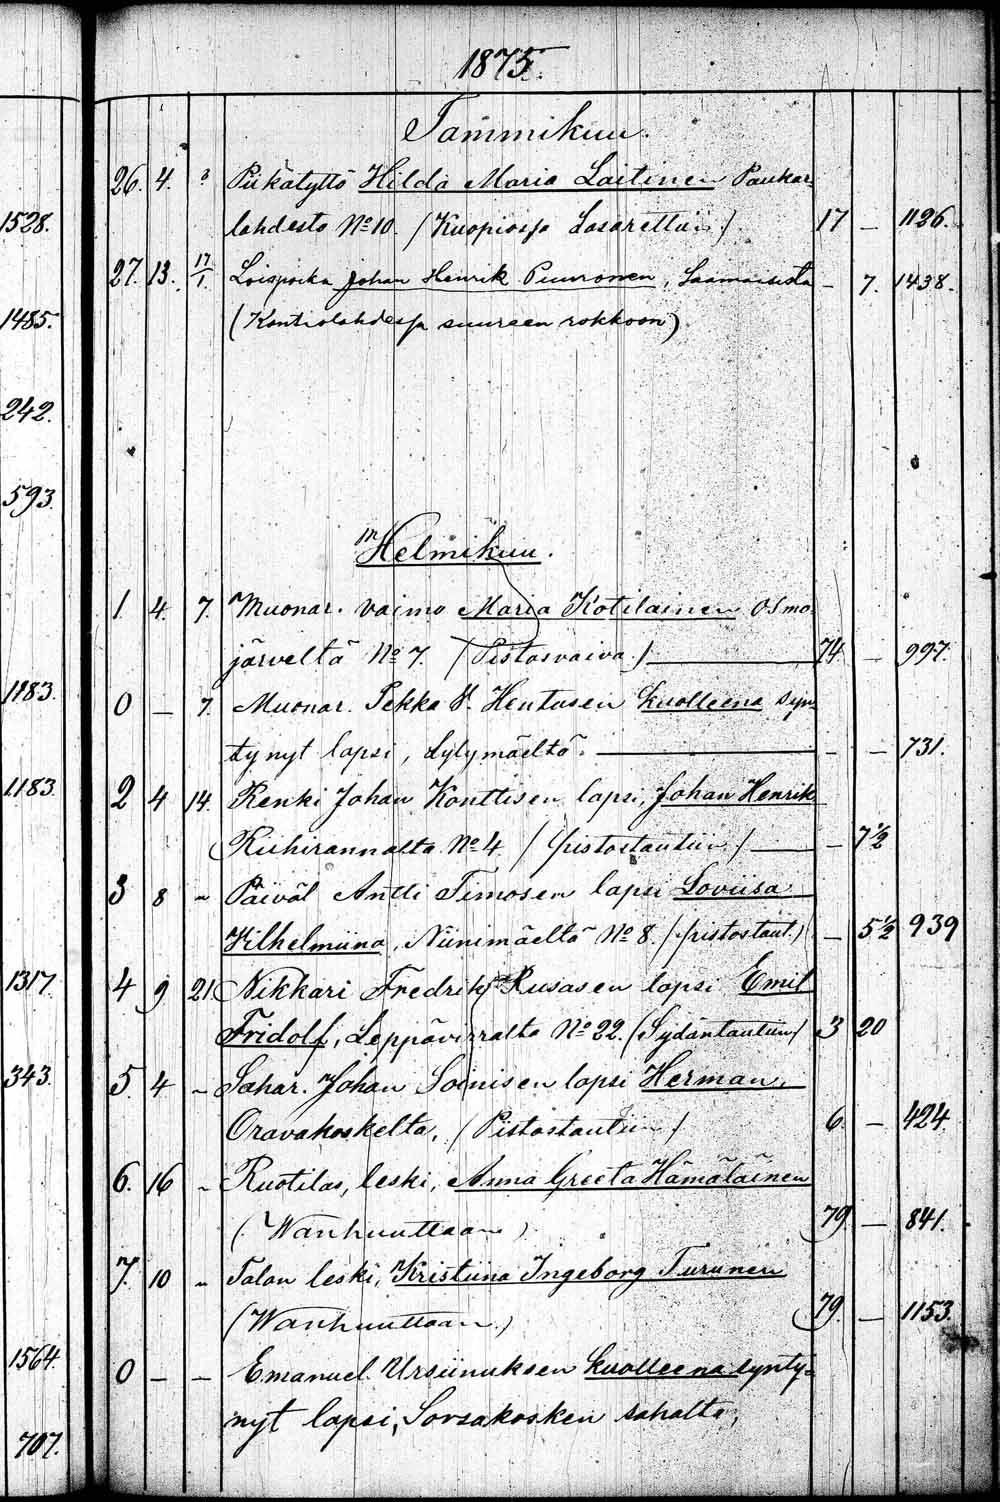 1875.
Tammikuu.
26. 4. Piikatyttö Hilda Maria Laitinen Paukar-
1528. lahdesta No 10. (Kuopiossa Lasarettiin) 17 — 1126.
27. 13. 17/1. Loispoika Johan Henrik Puuronen, Saamaisista — 7. 1438.
1485. (Kontiolahdessa suureen rokkoon)
242.
593.
Helmikuu.
1. 4. 7. Muonar. vaimo Maria Kotilainen Osmo-
järveltä No 7. (Pistosvaiva.) 74 — 997.
1183. 0 — 7. Muonar. Pekka Hentusen kuolleena syn-
tynyt lapsi, Sylymäeltä. — — 731.
1183. 2 4 14. Renki Johan Konttisen lapsi, Johan Henrik
Riihirannalta No 4. (pistostautiin) — 7 1/2
3 8 " Päiväl Antti Timosen lapsi Loviisa
Wilhelmiina, Niinimäeltä No 8. (pistostaut.) — 5 1/2 939
1317. 4 9 21. Nikkari Fredrik Rusasen lapsi Emil
Fridolf, Leppävirralta No 22. (Sydäntautiin) 3 20
343. 5. 4 " Sahar. Johan Soinisen lapsi Herman,
Oravakoskelta, (Pistostautiin) 6. — 424.
6. 16 " Ruotilas, leski, Anna Greeta Hämäläinen
(Wanhuuttaan) 79 — 841.
7. 10 " Talon leski, Kristiina Ingeborg Turunen
(Wanhuuttaan.) 79. — 1153.
1564. 0 — — Emanuel Ursiinuksen kuolleena synty-
nyt lapsi, Sorsakosken sahalta,
707.